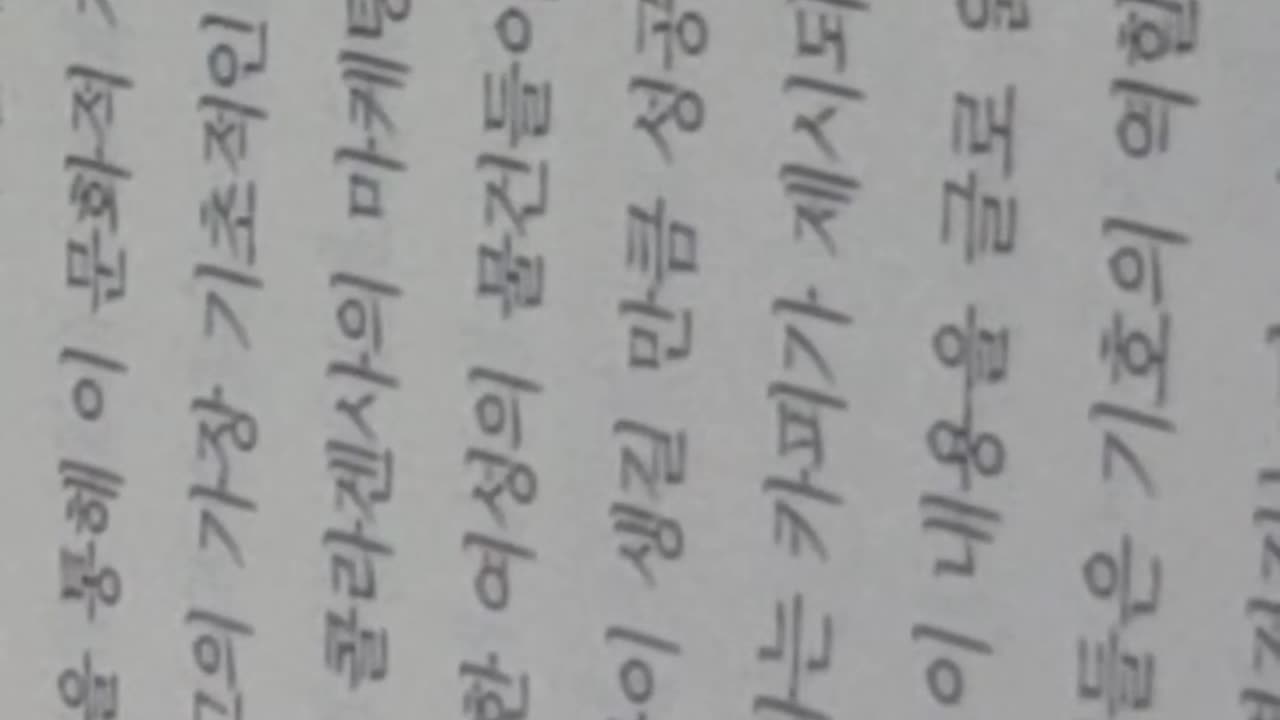 을 통해 이 문화적
고의 가장 기초적인
콜라겐사의 마케팅
한 여성의 물건들이
이 생길 만큼 성공
는 카피가 제시되
이 내용을 글로
들은 기호의 역할